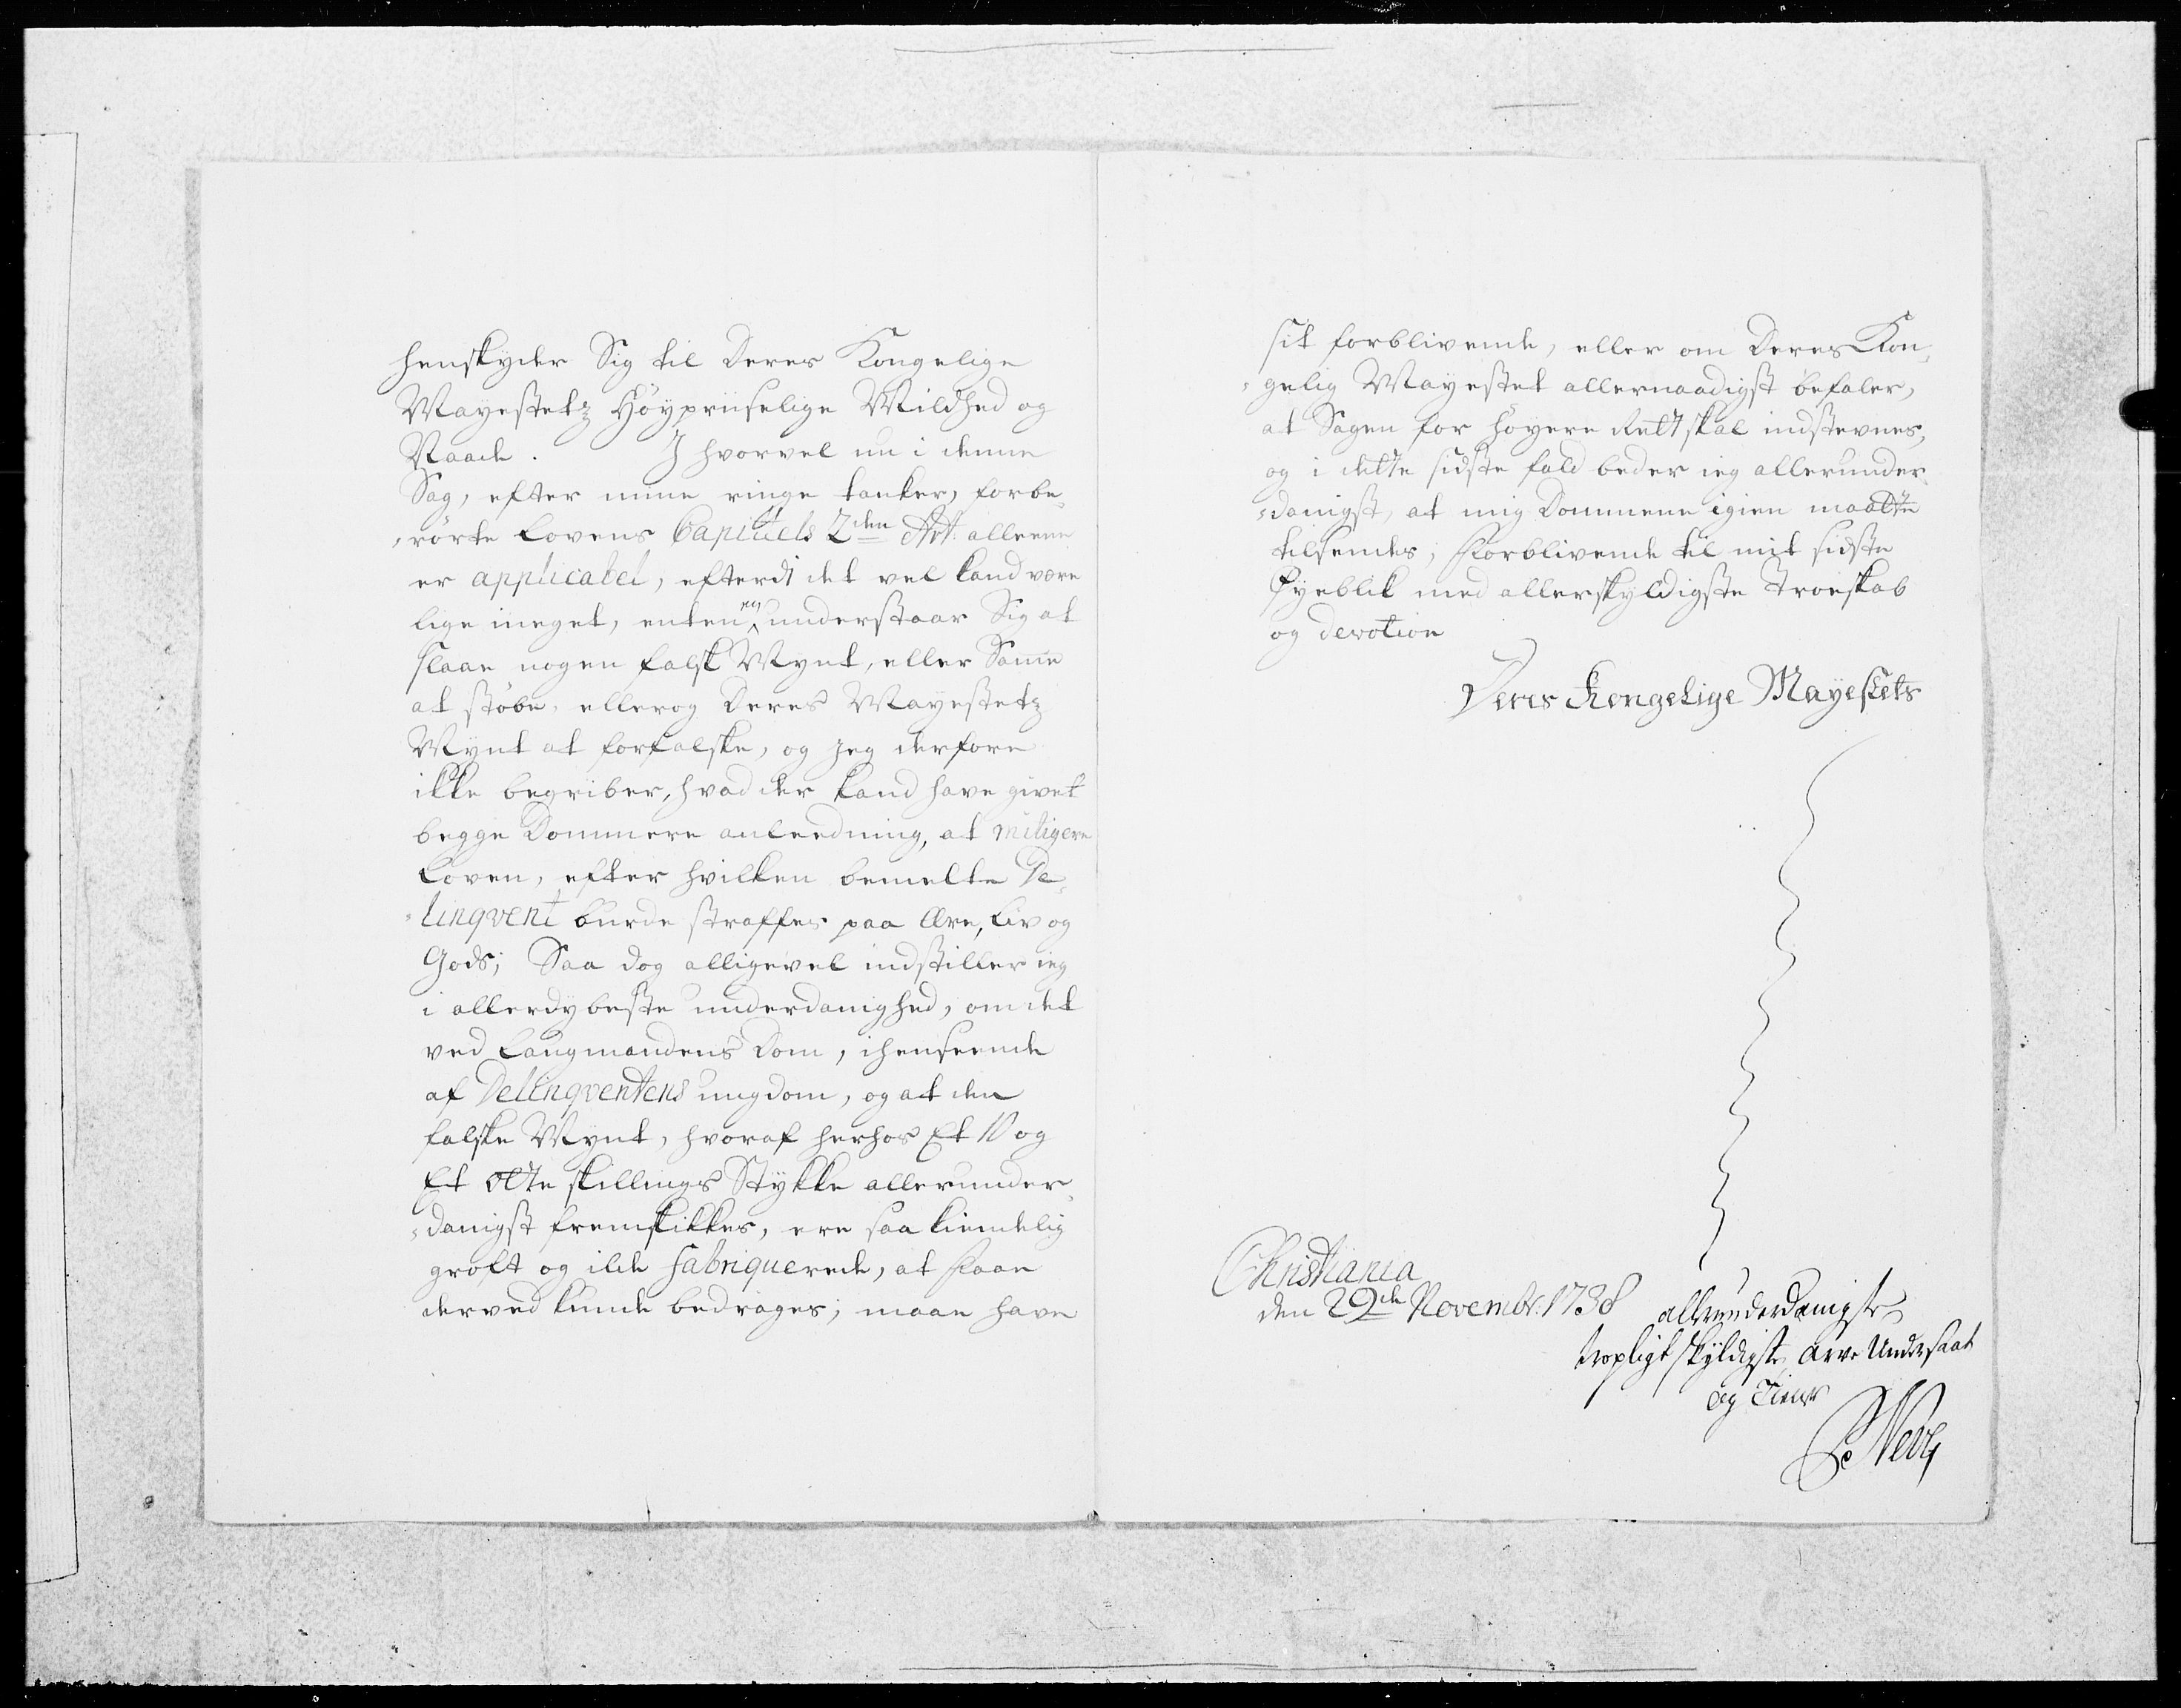 henskyder Sig til Deres Kongelige
Mayestetz Höypriiselige Mildhed og
Naade. J hvorvel nu i denne
Sag, efter mine ringe tanker, forbe-
-rörte Lovens Capituls 2den Art: alleene
er applicabel, efterdi det vel kand være
lige meget, enten understaar Sig at
slaae nogen falsk Mynt, eller Samme
at stöbe, ellerog Deres Mayestetz
Mynt at forfalske, og jeg derfore
ikke begriber, hvad der kand have givet
begge Dommere anleedning, at mitigere
Loven, efter hvilken bemelte De-
-linqvent burde straffes paa Ære, Liv og
Gods; Saa dog alligevel indstiller ieg
i allerdybeste underdanighed, om det
ved Laugmandens Dom, ihenseende
af Delinqventens ungdom, og at den
falske Mynt, hvoraf herhos Et 10 og
Et Otte skillings Stykke allerunder-
-danigst fremskikkes, ere saa kiendelig
groft og ilde fabriquerede, at faae
derved kunde bedrages; maae have
sit forblivende, eller om Deres Kon-
-gelig Mayestet allernaadigst befaler,
at Sagen for höyere Rett skal indstevnes,
og i dette sidste fald beder ieg allerunder-
-danigst, at mig Dommene igien maatte
tilsendes; Forblivende til mit sidste
Øyeblik med allerskyldigste Troeskab
og devotion
Deres Kongelige Mayestets
Christiania
den 29de Novembr: 1738 allerunderdanigste
tropligt skyldigste Arve Undersaat
og Tiener